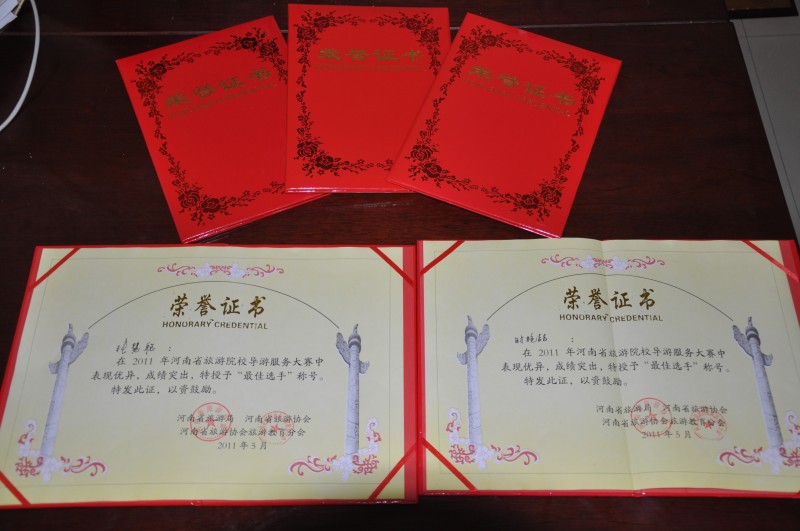 荣誉证书
荣誉证书
荣誉证书
荣誉证书
HONORARY CREDENTIAL
:
在 2011 年河南省旅游院校导游服务大赛中
表现优异，成绩突出，特授予“最佳选手”称号。
特发此证，以资鼓励。
河南省旅游局 河南省旅游协会
河南省旅游协会旅游教育分会
2011 年 5 月
荣誉证书
HONORARY CREDENTIAL
:
在 2011 年河南省旅游院校导游服务大赛中
表现优异，成绩突出，特授予“最佳选手”称号。
特发此证，以资鼓励。
河南省旅游局 河南省旅游协会
河南省旅游协会旅游教育分会
2011 年 5 月